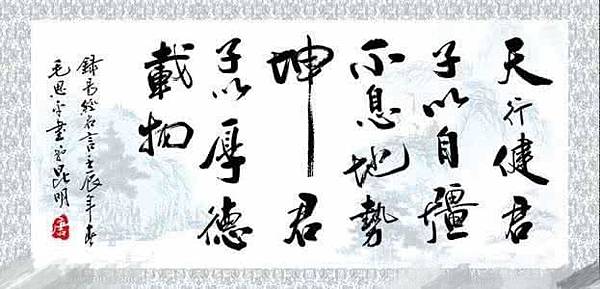 天行健君
子以自疆
不息地勢
坤君
子以厚德
載物
錄易經名言壬辰年春
毛思書於昆明